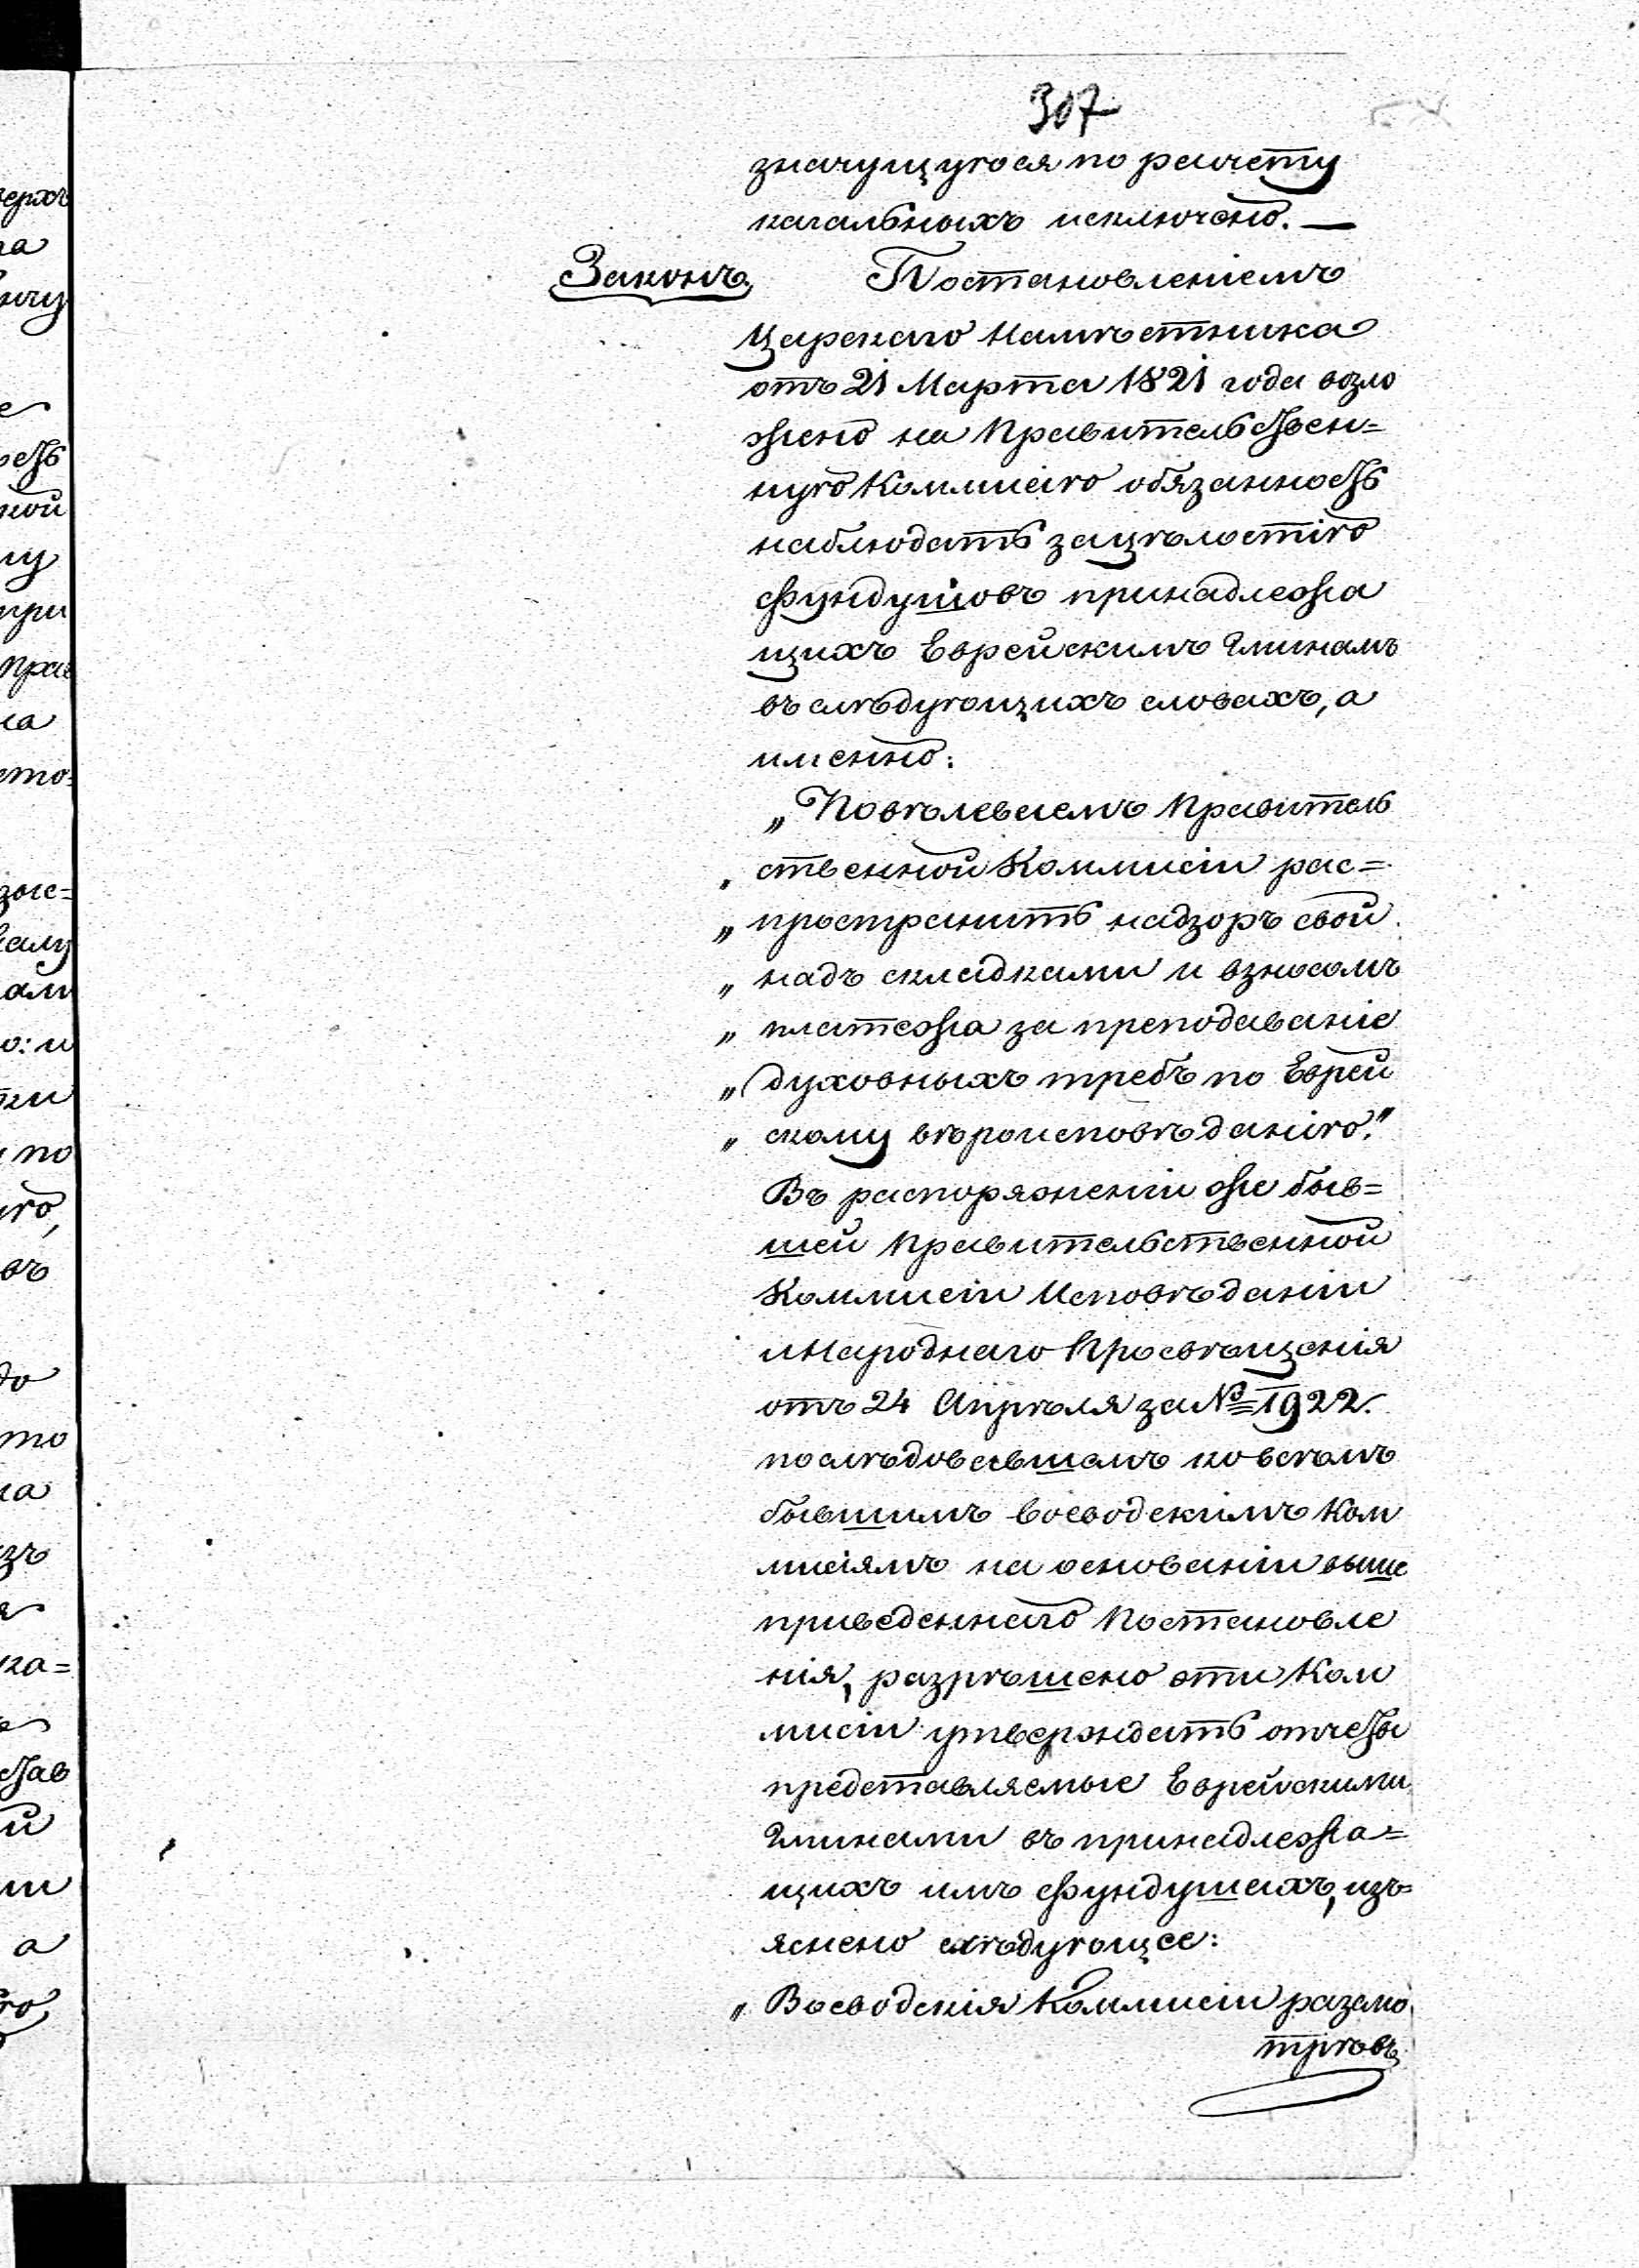 307
значущуюся по расчету
кагальныхъ исключено. —
Законъ. Постановленіемъ
Царскаго Намѣстника
отъ 21 Марта 1821 года возло
жено на Правительствен=
ную Коммисію обязанность
наблюдать за цѣлостію
фундушовъ принадлежа
щихъ Еврейскимъ Гминамъ
въ слѣдующихъ словахъ, а
именно:
„ Повѣлеваемъ Правитель
„ ственной Коммисіи рас=
„ пространить надзоръ свой
„ надъ складками и взносомъ
„ платежа за преподаваніе
„ духовныхъ требъ по Еврей
„ скому вѣроисповѣданію."
Въ распоряженіи же быв=
шей Правительственной
Коммисіи Исповѣданіи
и Народнаго Просвѣщенія
отъ 24 Апрѣля за № 1922.
послѣдовавшемъ ко всѣмъ
бывшимъ Воеводскимъ Ком
мисіямъ на основаніи выше
приведеннаго Постановле
нія, разрѣшено эти Ком
мисіи утверждать отчеты
представляемые Еврейскими
Гминами въ принадлежа=
щихъ имъ фундушахъ, изъ=
яснено слѣдующее:
„ Воеводскія Коммисіи разсмо
трѣвъ
верхъ
на
е
ность
ной
му
при
Прав
на
зыс=
по
въ
до
то
на
изъ
ка=
став
й
ми
а